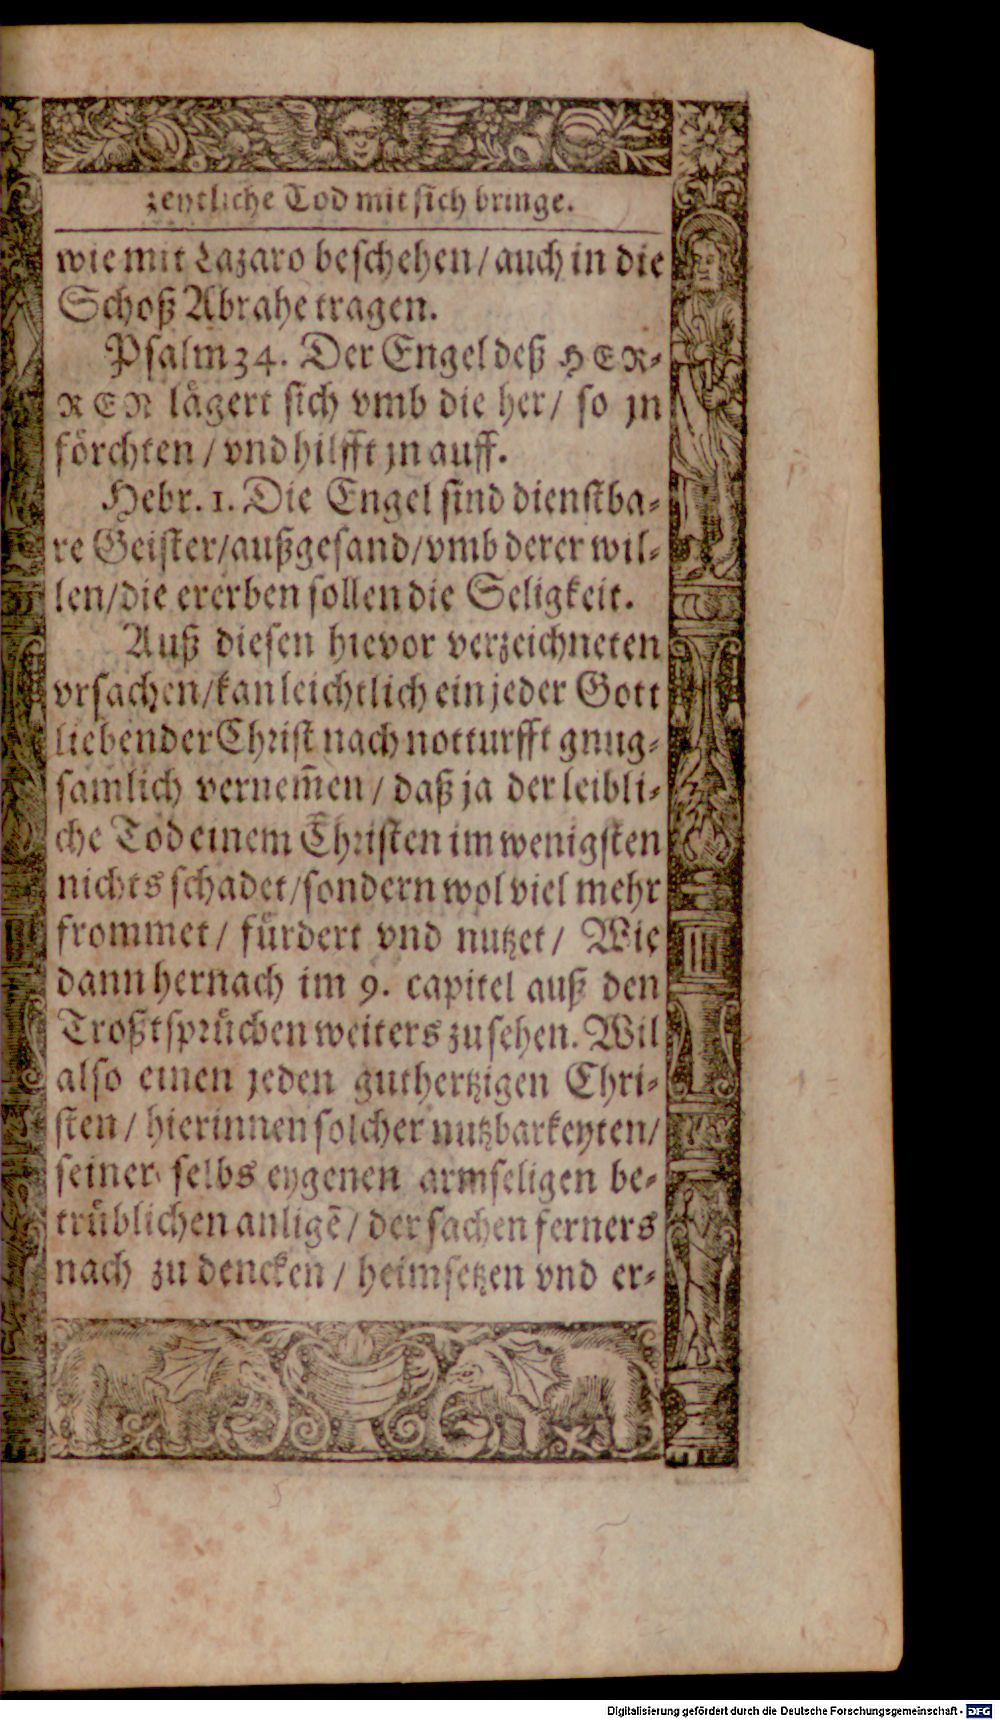 zeytliche Tod mit sich bringe.
wie mit Lazaro beschehen / auch in die
Schoß Abrahe tragen.
Psalm 34. Der Engel deß HER-
REN lågert sich vmb die her / so jn
förchten / vnd hilfft jn auff.
Hebr. 1. Die Engel sind dienstba-
re Geister / außgesand / vmb derer wil-
len / die ererben sollen die Seligkeit.
Auß diesen hievor verzeichneten
vrsachen / kan leichtlich ein jeder Gott
liebender Christ nach notturfft gnug-
samlich vernem̃en / daß ja der leibli-
che Tod einem Christen im wenigsten
nichts schadet / sondern wol viel mehr
frommet / fürdert vnd nutzet / Wie
dann hernach im 9. capitel auß den
Troßtsprüchen weiters zu sehen. Wil
also einen jeden guthertzigen Chri-
sten / hierinnen solcher nutzbarkeyten /
seiner selbs eygenen armseligen be-
trüblichen anligẽ / der sachen ferners
nach zu dencken / heimsetzen vnd er-
Digitalisierung gefördert durch die Deutsche Forschungsgemeinschaft - DFG